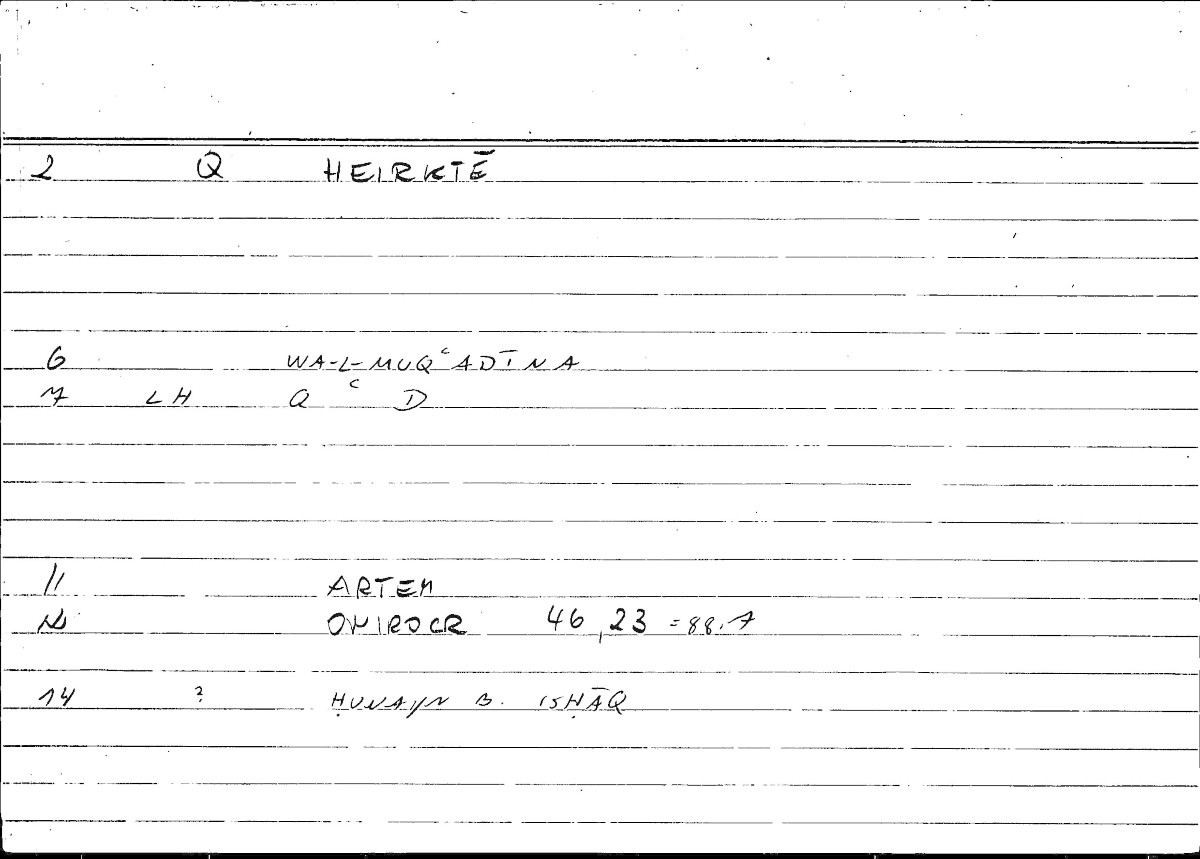 2 Q HEIRKTĒ
6 WA-L-MUQʿADĪNA
7 LH Q ʿ D
11 ARTEM
12 ONIROCR 46,23 =88.7
14 ? ḤUNAYN B. ISḤĀQ